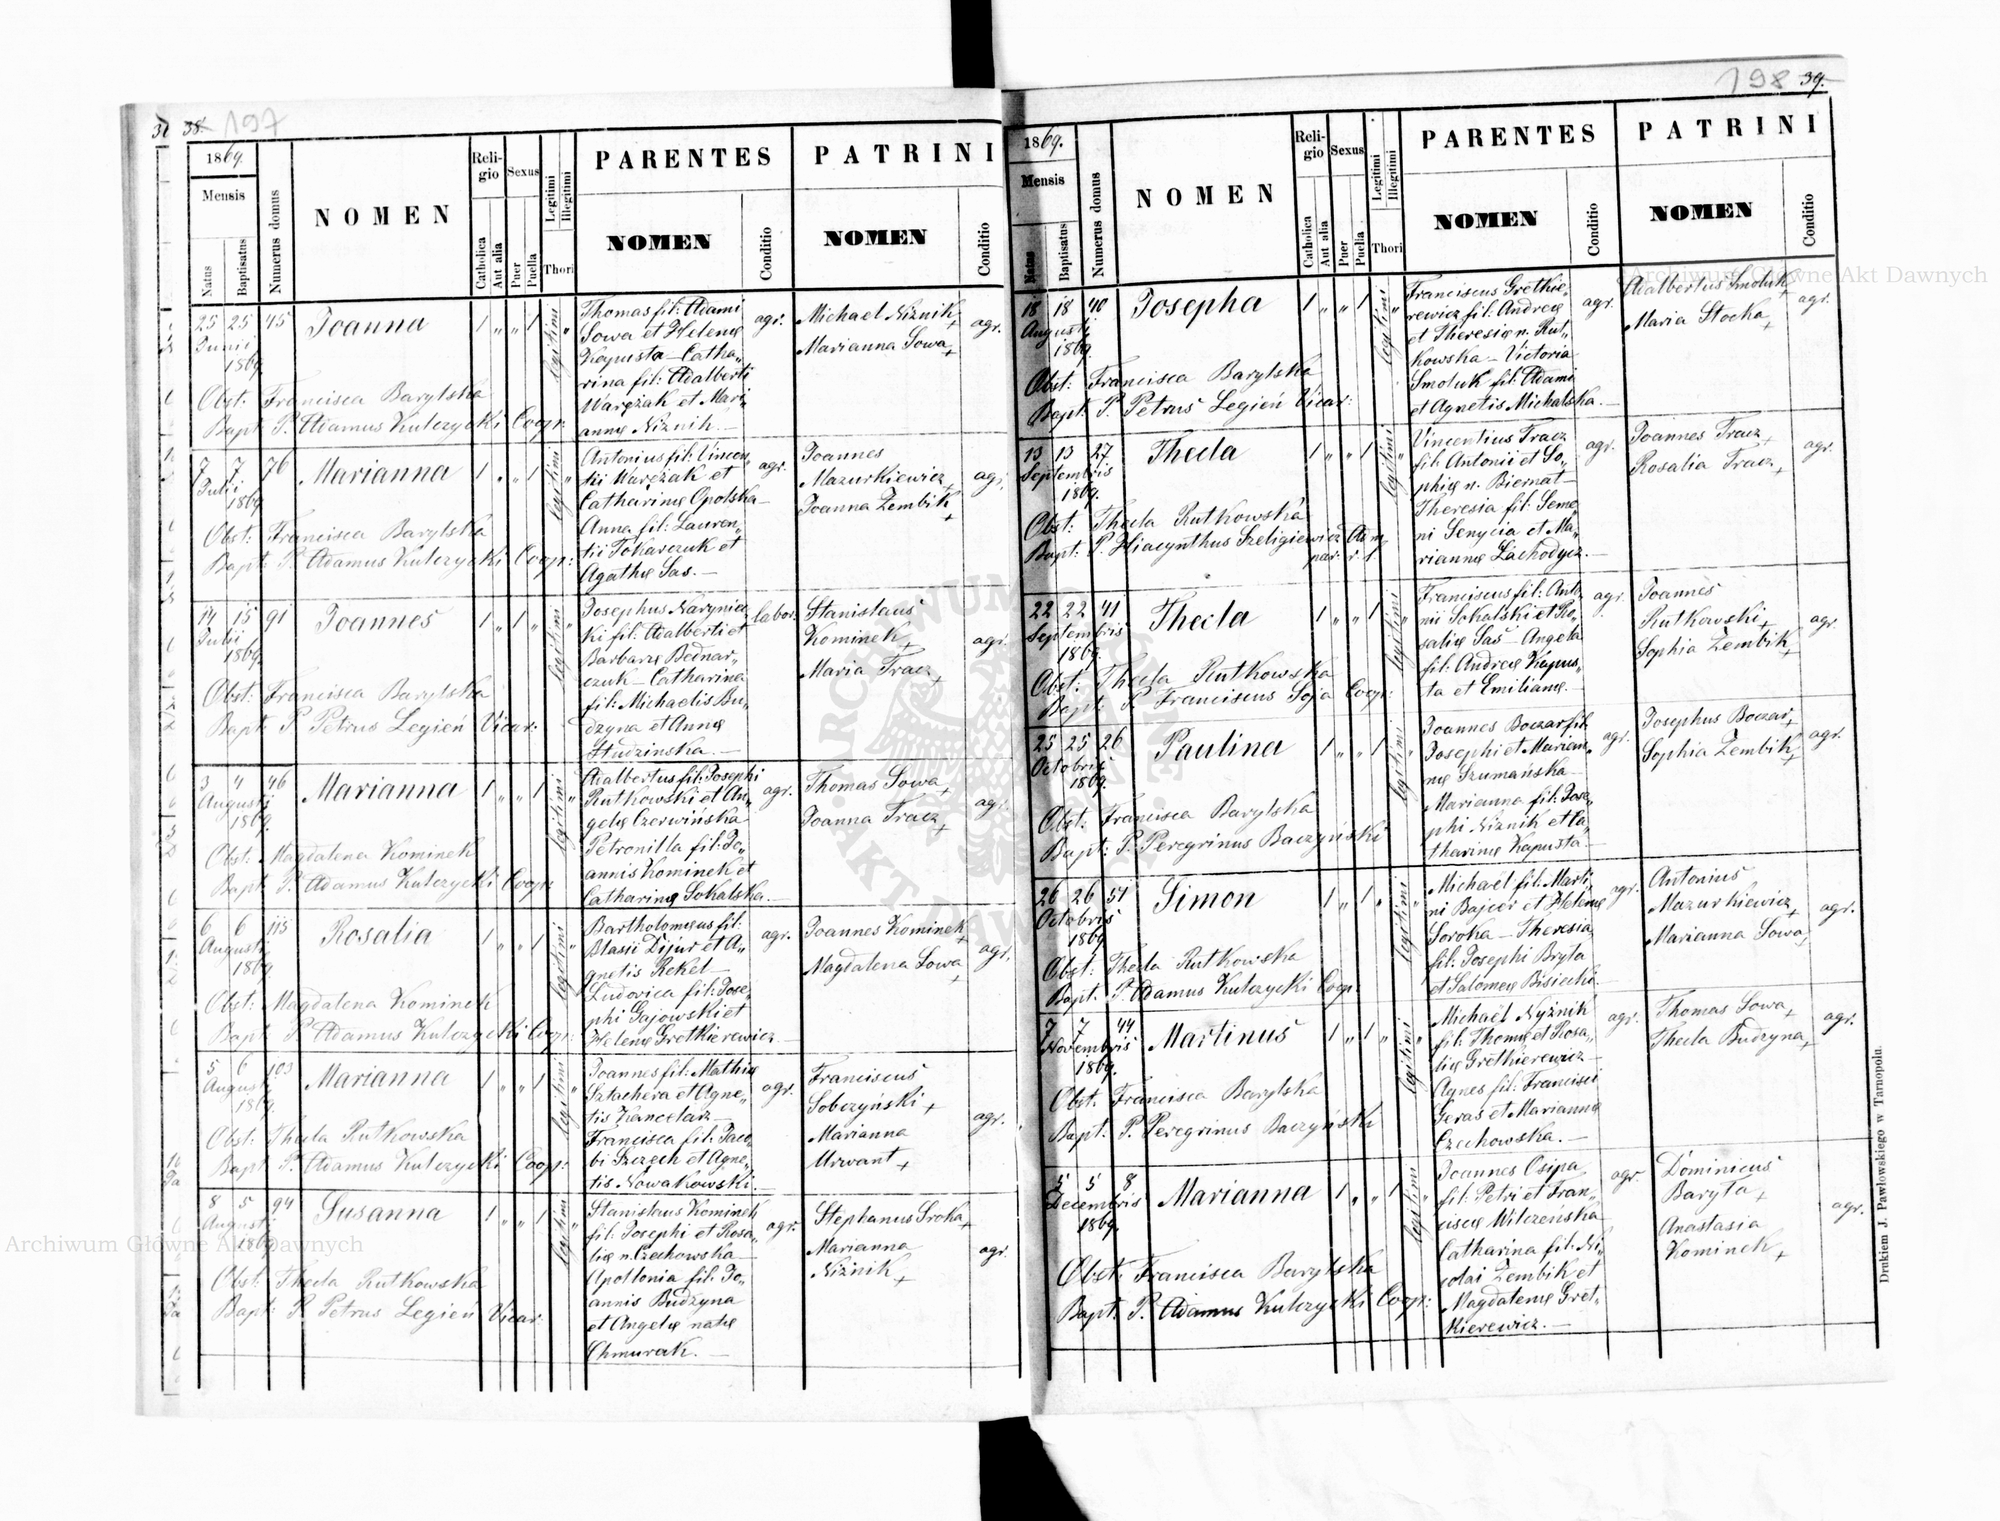 38. 197
1869.
Mensis
Natus
Baptisatus
Numerus domus
NOMEN
Religio
Catholica
Aut alia
Sexus
Puer
Puella
Legitimi
Illegitimi
Thori
PARENTES
NOMEN
Conditio
PATRINI
NOMEN
Conditio
25 25 45 Joanna 1 „ „ 1 legitimi „
Junii
1869.
Thomas fil: Adami
Sowa et Helenę
Kapusta – Catha„
rina fil: Adalberti
Warężak et Mari„
annę Niżnik. —
agr.
Michael Niżnik +
Marianna Sowa +
agr.
Obst: Francisca Barylska
Bapt: P. Adamus Kulczycki Coop:
7 7 76 Marianna 1 „ „ 1 legitimi „
Julii
1869.
Antonius fil: Vincen„
tii Warężak et
Catharinę Opolska –
Anna fil: Lauren„
tii Tokarczuk et
Agathę Sas. —
agr.
Joannes
Mazurkiewicz +
Joanna Zembik +
agr.
Obst: Francisca Barylska
Bapt: P. Adamus Kulczycki Coop:
14 15 91 Joannes 1 „ 1 „ legitimi „
Julii
1869.
Josephus Narynic„
ki fil: Adalberti et
Barbarę Bednar„
czuk – Catharina
fil: Michaelis Bu„
dzyna et Annę
Studzinska. —
labor:
Stanislaus
Kominek +
Maria Tracz +
agr.
Obst: Francisca Barylska
Bapt: P. Petrus Legień Vicar:
3 4 46 Marianna 1 „ „ 1 legitimi „
Augusti
1869.
Adalbertus fil: Josephi
Rutkowski et An„
gelę Czerwińska
Petronilla fil: Jo„
annis Kominek et
Catharinę Sokalska. —
agr.
Thomas Sowa +
Joanna Tracz +
agr.
Obst: Magdalena Kominek
Bapt: P. Adamus Kulczycki Coop:
6 6 115 Rosalia 1 „ „ 1 legitimi „
Augusti
1869
Bartholomęus fil:
Blasii Dżiur et A„
gnetis Rekel –
Ludovica fil: Jose„
phi Gajowski et
Helenę Gretkierewicz. —
agr.
Joannes Kominek +
Magdalena Sowa +
agr.
Obst: Magdalena Kominek
Bapt: P. Adamus Kulczycki Coop:
5 6 103 Marianna 1 „ „ 1 legitimi „
Augusti
1869.
Joannes fil: Mathię
Sztachera et Agne„
tis Kancelarz –
Francisca fil: Jaco„
bi Szczech et Agne„
tis Nowakowski. —
agr.
Franciscus
Sobczyński +
Marianna
Urwant +
agr.
Obst: Thecla Rutkowska
Bapt: P. Adamus Kulczycki Coop:
8 5 94 Susanna 1 „ „ 1 legitimi „
Augusti
1869.
Stanislaus Kominek
fil: Josephi et Rosa„
lię n. Czechowska –
Apollonia fil: Jo„
annis Budzyna
et Angelę natę
Chmurak. —
agr.
Stephanus Sroka +
Marianna
Niżnik +
agr.
Obst: Thecla Rutkowska
Bapt: P. Petrus Legień Vicar:
198 39.
1869.
Mensis
Natus
Baptisatus
Numerus domus
NOMEN
Religio
Catholica
Aut alia
Sexus
Puer
Puella
Legitimi
Illegitimi
Thori
PARENTES
NOMEN
Conditio
PATRINI
NOMEN
Conditio
18 18 40 Josepha 1 „ „ 1 legitimi „
Augusti
1869.
Franciscus Grethie„
rewicz fil: Andreę
et Theresię n. Rut„
kowska – Victoria
Smoluk fil: Adami
et Agnetis Michalska. —
agr.
Adalbertus Smoluk +
Maria Stocka +
agr.
Obst: Francisca Barylska
Bapt: P. Petrus Legień Vicar:
13 13 27 Thecla 1 „ „ 1 legitimi „
Septembris
1869.
Vincentius Tracz
fil: Antonii et So„
phię n. Biernat –
Theresia fil: Seme„
ni Senycia et Ma„
riannę Lachodycz. —
agr.
Joannes Tracz +
Rosalia Tracz +
agr.
Obst: Thecla Rutkowska
Bapt: P. Hiacynthus Szeligiewicz
22 22 41 Thecla 1 „ „ 1 legitimi „
Septembris
1869.
Franciscus fil: Anto„
nii Sokalski et Ro„
salię Sas – Angela
fil: Andreę Kapus„
ta et Emilianę. —
agr.
Joannes
Rutkowski +
Sophia Zembik +
agr.
Obst: Thecla Rutkowska
Bapt: P. Franciscus Soja Coop:
25 25 26 Paulina 1 „ „ 1 legitimi „
Octobris
1869.
Joannes Boczar fil:
Josephi et Marian„
nę Szumańska –
Marianna fil: Jose„
phi Niżnik et Ca„
tharinę Kapusta. —
agr.
Josephus Boczar +
Sophia Zembik +
agr.
Obst: Francisca Barylska
Bapt: P. Peregrinus Baczyński
26 26 51 Simon 1 „ 1 „ legitimi „
Octobris
1869
Michaël fil: Marti„
ni Bajcór et Helenę
Soroka – Theresia
fil: Josephi Bryła
et Salomeę Bisiecki. —
agr.
Antonius
Mazurkiewicz +
Marianna Sowa +
agr.
Obst: Thecla Rutkowska
Bapt: P. Adamus Kulczycki Coop:
7 7 44 Martinus 1 „ 1 „ legitimi „
Novembris
1869.
Michaël Nyżnik
fil: Thomę et Rosa„
lię Grethierewicz –
Agnes fil: Francisci
Geras et Mariannę
Czechowska. —
agr.
Thomas Sowa +
Thecla Budzyna +
agr.
Obst: Francisca Barylska
Bapt: P. Peregrinus Baczyński
5 5 8 Marianna 1 „ „ 1 legitimi „
Decembris
1869.
Joannes Osipa
fil: Petri et Fran„
ciscę Wilczeńska
Catharina fil: Ni„
colai Zembik et
Magdalenę Gret„
kierewicz. —
agr.
Dominicus
Baryła +
Anastasia
Kominek +
agr.
Obst: Francisca Barylska
Bapt: P. Adamus Kulczycki Coop:
Drukiem J. Pawłowskiego w Tarnopolu.
Archiwum Główne Akt Dawnych
Archiwum Główne Akt Dawnych
ARCHIWUM GŁÓWNE AKT DAWNYCH